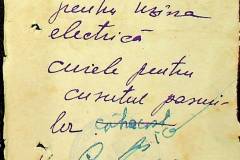 pentru uzina
electrică
cuiele pentru
cusutul pasmi-
lor